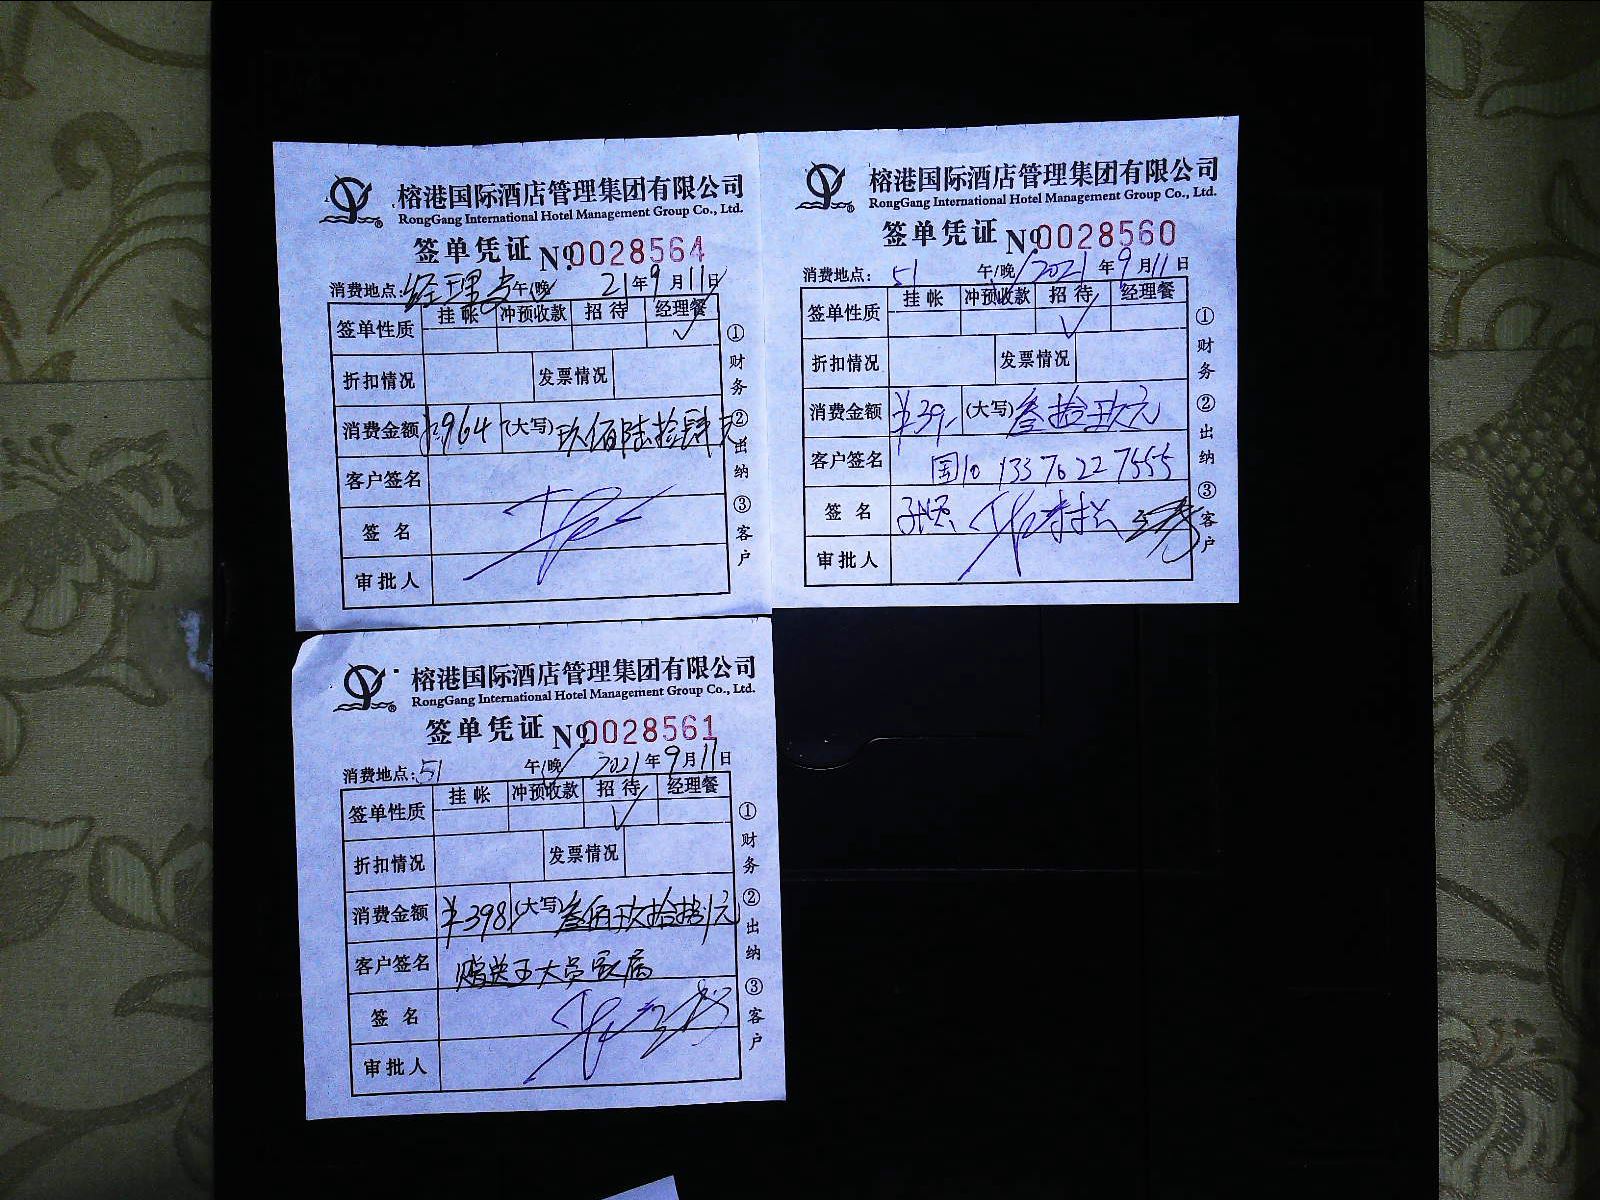 榕港国际酒店管理集团有限公司
RongGang International Hotel Management Group Co., Ltd.
签单凭证 Nº0028564
消费地点: 经理 午/晚 21年9月11日
签单性质 挂帐 冲预收款 招待 经理餐
✓
折扣情况 发票情况
消费金额 ¥964 (大写) 玖佰陆拾肆元
客户签名
签名
审批人
①财务 ②出纳 ③客户
榕港国际酒店管理集团有限公司
RongGang International Hotel Management Group Co., Ltd.
签单凭证 Nº0028560
消费地点: 51 午/晚 2021年9月11日
签单性质 挂帐 冲预收款 招待 经理餐
✓
折扣情况 发票情况
消费金额 ¥39- (大写) 叁拾玖元
客户签名 国10 13376227555
签名
审批人
①财务 ②出纳 ③客户
榕港国际酒店管理集团有限公司
RongGang International Hotel Management Group Co., Ltd.
签单凭证 Nº0028561
消费地点: 51 午/晚 2021年9月11日
签单性质 挂帐 冲预收款 招待 经理餐
✓
折扣情况 发票情况
消费金额 ¥398 (大写) 叁佰玖拾捌元
客户签名 赠送王大员家属
签名
审批人
①财务 ②出纳 ③客户